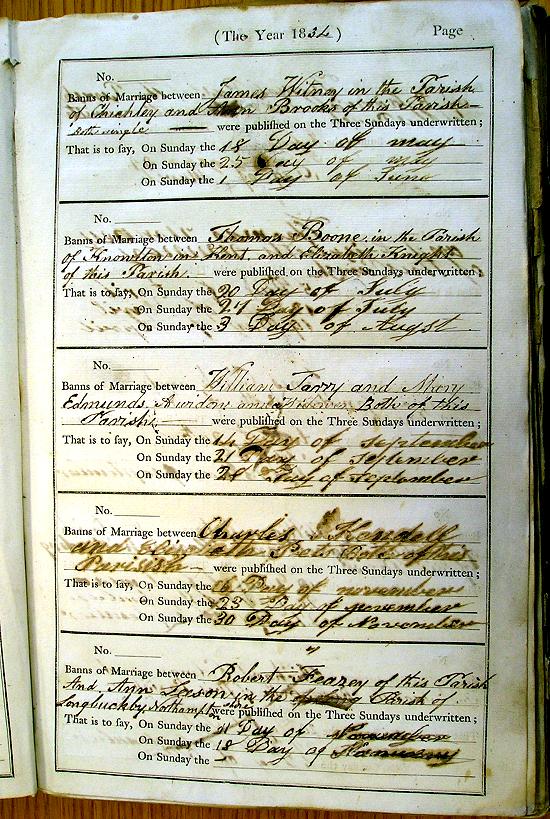 (The Year 1834) Page
No.
Banns of Marriage between James Wilney in the Parish
of Chichley and Ann Brooks of this Parish
Both single were published on the Three Sundays underwritten;
That is to say, On Sunday the 18 Day of may
On Sunday the 25 Day of may
On Sunday the 1 Day of June
No.
Banns of Marriage between Thomas Boone in the Parish
of Knowlton in Kent and Elizabeth Knight
of this Parish were published on the Three Sundays underwritten;
That is to say, On Sunday the 20 Day of July
On Sunday the 27 Day of July
On Sunday the 3 Day of Augst
No.
Banns of Marriage between William Tarry and Mary
Edmunds A widow and Widower Both of this
Parish were published on the Three Sundays underwritten;
That is to say, On Sunday the 14 Day of September
On Sunday the 21 Day of September
On Sunday the 28 Day of September
No.
Banns of Marriage between Charles Kendall
and Elizabeth Both of this
Parisish were published on the Three Sundays underwritten;
That is to say, On Sunday the 16 Day of november
On Sunday the 23 Day of november
On Sunday the 30 Day of November
No. "
Banns of Marriage between Robert Fearey of this Parish
And Ann Season in the Parish of
Longbuckby Northamptonshire were published on the Three Sundays underwritten;
That is to say, On Sunday the 11 Day of
On Sunday the 18 Day of
On Sunday the